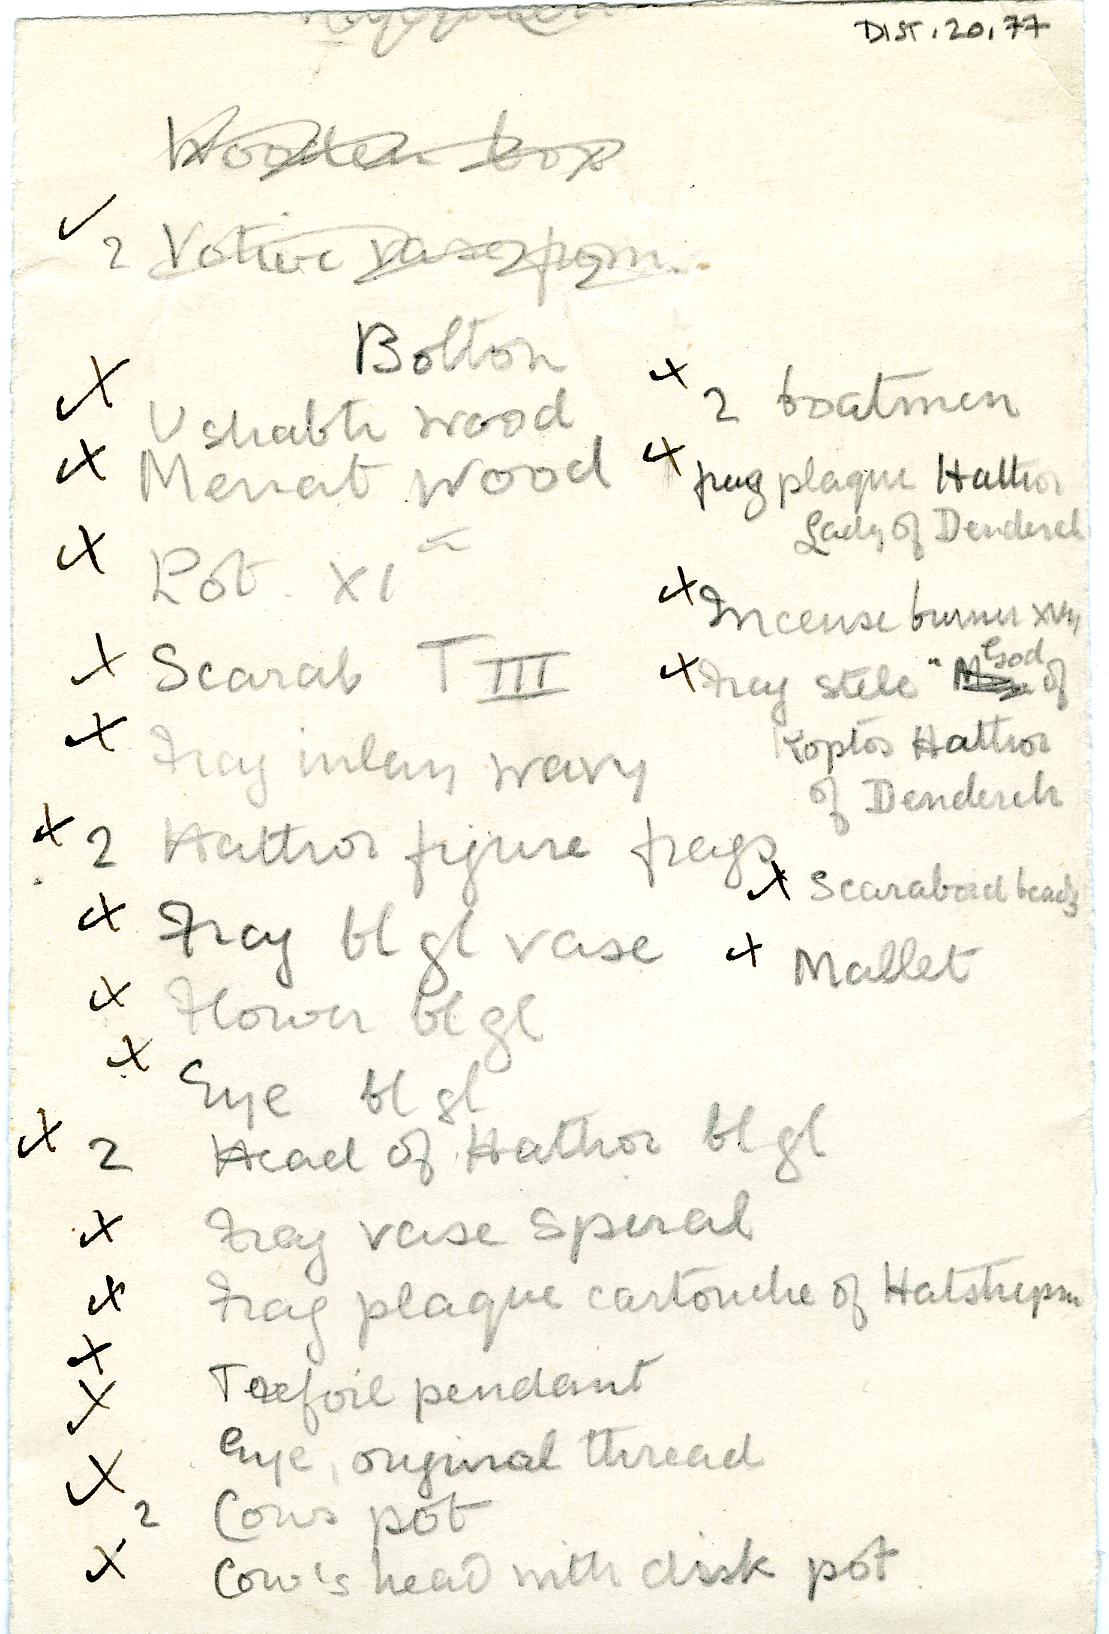 DIST.20.77
Wooden box
2 Votive vase frgm.
Bolton
Ushabti wood
Menat wood
Pot XI
Scarab T III
Frag inlay wavy
2 Hathor figure frags
Frag bl gl vase
Flower bl gl
Eye bl gl
2 Head of Hathor bl gl
Frag vase spiral
Frag plaque cartouche of Hatshepsu
Trefoil pendant
Eye, original thread
2 Cows pot
Cow's head with disk pot
2 boatmen
frag plaque Hathor
Lady of Dendereh
Incense burner XVIII
Frag stele "God of
Koptos Hathor
of Dendereh
Scaraboid beads
Mallet